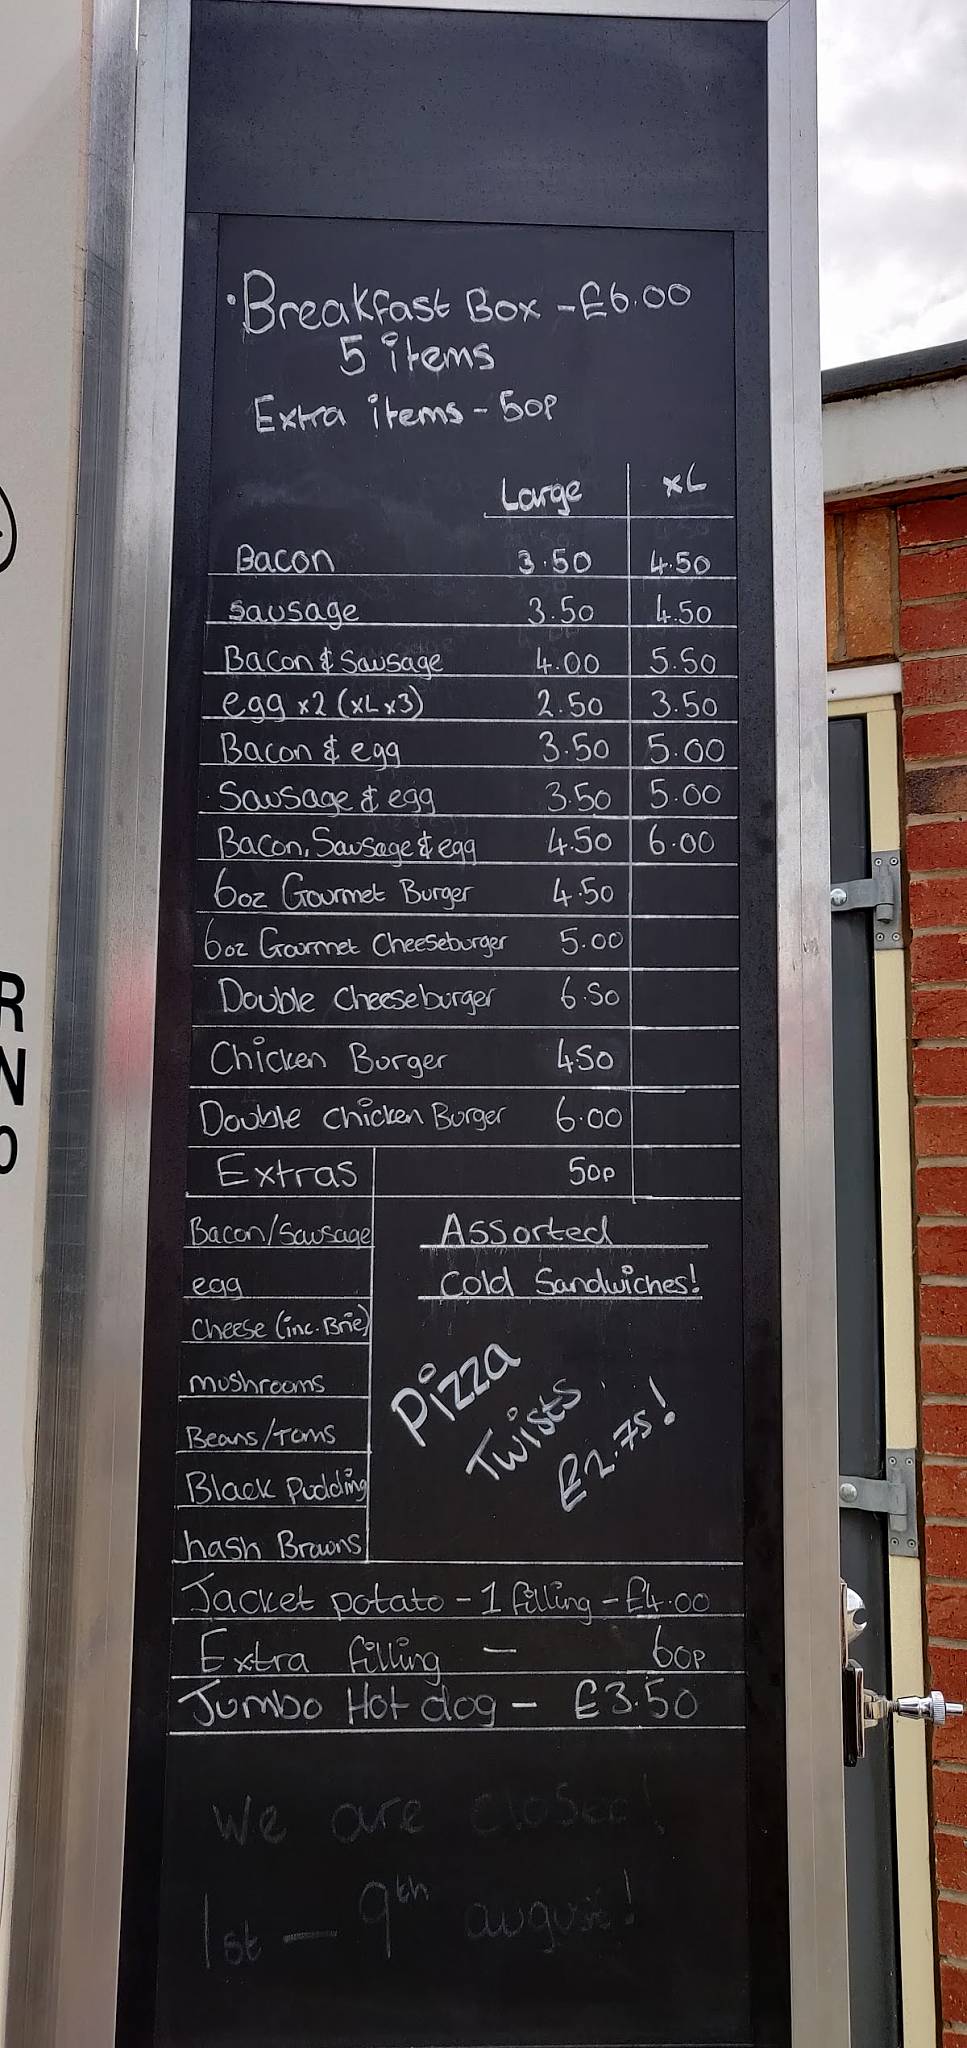 · Breakfast Box - £6.00
5 items
Extra items - 50p
Large xL
Bacon 3.50 4.50
Sausage 3.50 4.50
Bacon & Sausage 4.00 5.50
egg x2 (xL x3) 2.50 3.50
Bacon & egg 3.50 5.00
Sausage & egg 3.50 5.00
Bacon, Sausage & egg 4.50 6.00
6oz Gourmet Burger 4.50
6oz Gourmet Cheeseburger 5.00
Double Cheeseburger 6.50
Chicken Burger 4.50
Double Chicken Burger 6.00
Extras 50p
Bacon/Sausage
egg
Cheese (inc. Brie)
mushrooms
Beans/Toms
Black Pudding
hash Browns
Assorted
Cold Sandwiches!
Pizza
Twists
£2.75!
Jacket potato - 1 filling - £4.00
Extra filling - 60p
Jumbo Hot dog - £3.50
We are closed!
1st - 9th august!
R
N
0